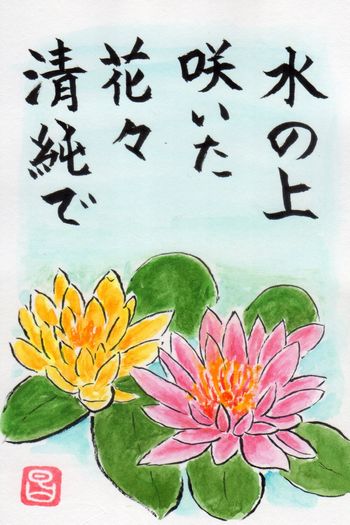 水の上
咲いた
花々
清純で
昌